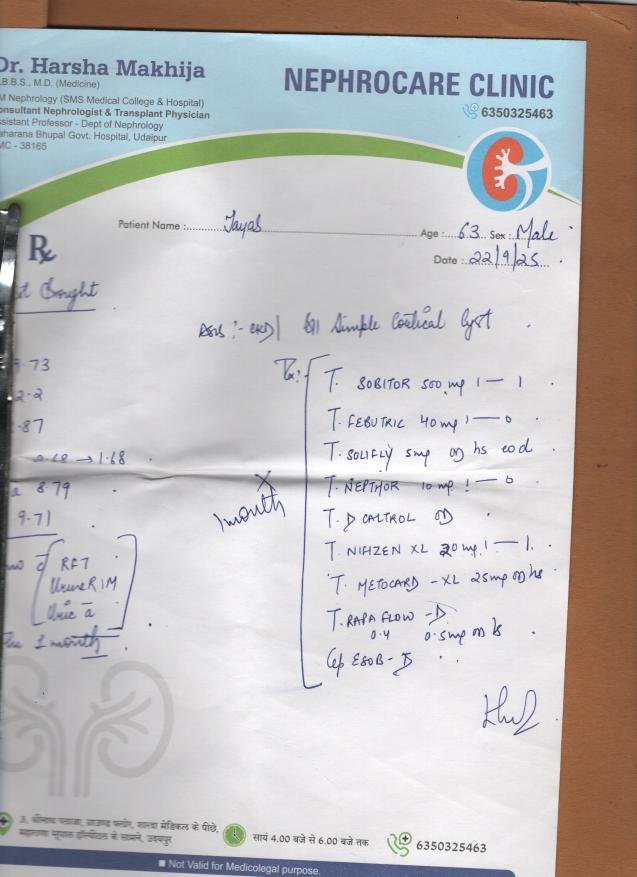 Dr. Harsha Makhija
.B.B.S., M.D. (Medicine)
M Nephrology (SMS Medical College & Hospital)
onsultant Nephrologist & Transplant Physician
ssistant Professor - Dept of Nephrology
aharana Bhupal Govt. Hospital, Udaipur
MC - 38165
NEPHROCARE CLINIC
6350325463
Patient Name : Jayab
Age : 63 Sex : Male
Date : 22/9/25
Rx
Bought
:- CKD | B/l Simple Cortical Cyst
9.73
2-2
.87
→ 1.68
8.79
9.71
RFT
Urine R/M
Uric a
1 month
X
1 month
Rx:
T. SOBITOR 500 mg 1 — 1
T. FEBUTRIC 40 mg 1 — 0
T. SOLIFLY 5mg OD hs eod
T. NEPTHOR 10 mg 1 — 0
T. D CALTROL OD
T. NIFIZEN XL 20mg 1 — 1.
T. METOCARD - XL 25mg OD hs
T. RAPA FLOW - D
0.4 0.5mg OD hs
Cap ESOB - D
3, श्रीनाथ प्लाजा, ग्राउण्ड फ्लोर, शारदा मेडिकल के पीछे,
महाराणा भूपाल हॉस्पिटल के सामने, उदयपुर
सायं 4.00 बजे से 6.00 बजे तक
6350325463
Not Valid for Medicolegal purpose.